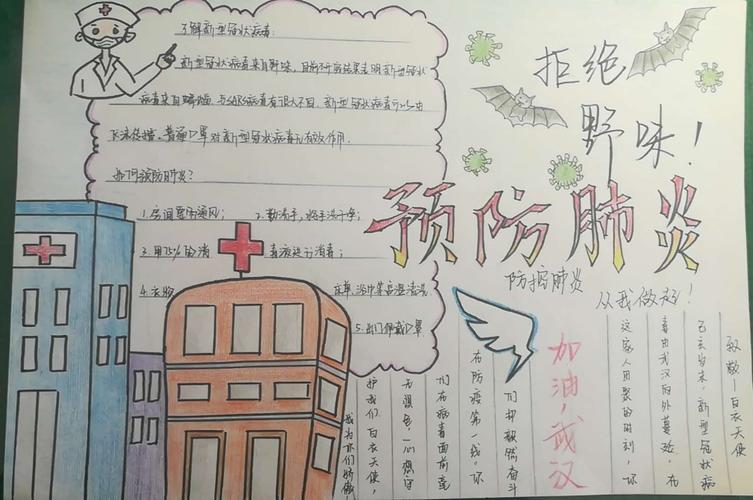 了解新型冠状病毒:
新型冠状病毒来自野味,目前研究结果表明新型冠状
病毒来自蝙蝠,与SARS病毒有很大不同,新型冠状病毒可以由
飞沫传播。普通口罩对新型冠状病毒有效作用.
如何预防肺炎?
1.房间要常通风;
2.勤洗手,
3.用75%的消
毒液进行消毒;
4.衣物
高温清洗.
5.出门佩戴口罩
拒绝
野味!
预防肺炎
防控肺炎
从我做起!
加油,武汉
致敬—白衣天使
己亥岁末,新型冠状病
毒由武汉向外蔓延,在
这家人团聚的时刻,你
们却毅然奋斗
在防疫第一线。你
们在病毒面前毫
无畏色,一心想守
护我们。白衣天使,
我为你们骄傲